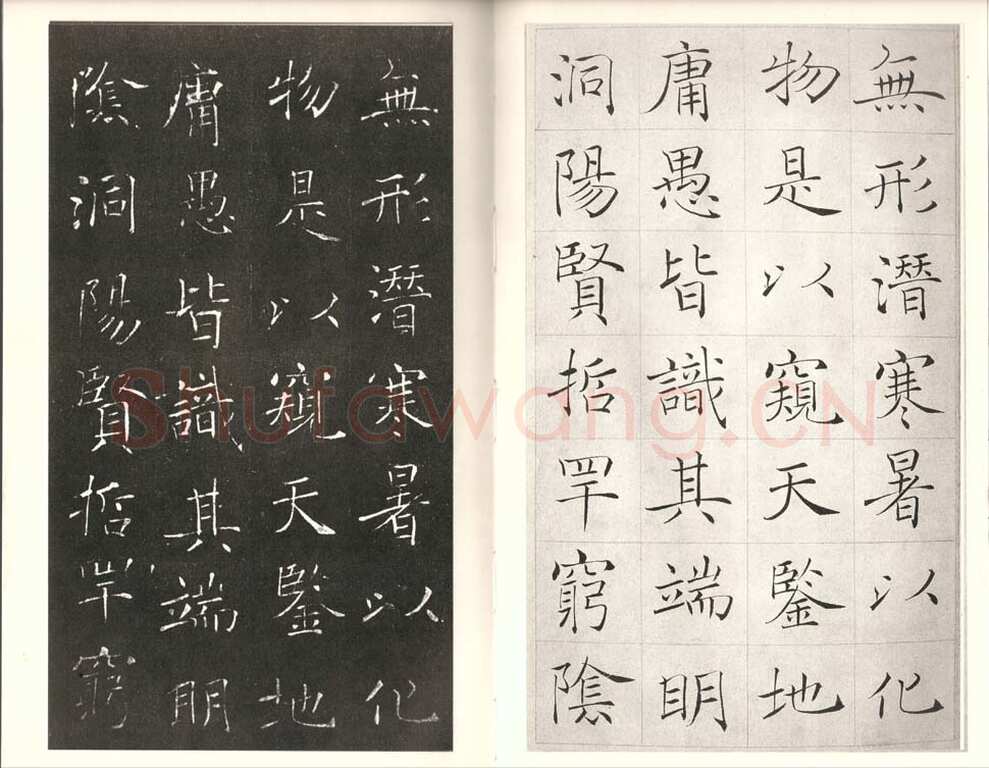 無形潛寒暑以化
物是以窺天鑒地
庸愚皆識其端明
洞陽賢哲罕窮陰
無形潛寒暑以化
物是以窺天鑒地
庸愚皆識其端明
陰洞陽賢哲罕窮
Shufawang.CN